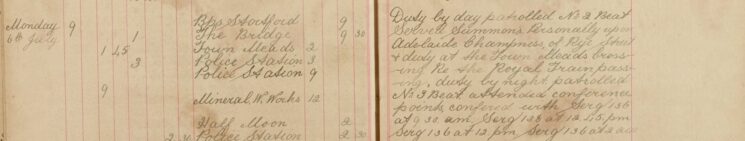 Bps Stortford 9
Monday 9 The Bridge 9 30
6th July 1 Town Meads 2
1 45 Police Station 3
3 Police Station 9
9
Mineral W. Works 12
Half Moon 2
2 30 Police Station 2 30
Duty by day patrolled No 2 Beat
Served Summons Personally upon
Adelaide Champness, of Rye Street
& duty at the Town Meads cross-
ing Re the Royal Train pass-
ing, duty by night patrolled
No 3 Beat attended conference
points, confered with Serg 136
at 9 30 am Serg 136 at 12.45 pm
Serg 136 at 12 pm Serg 136 at 2 am